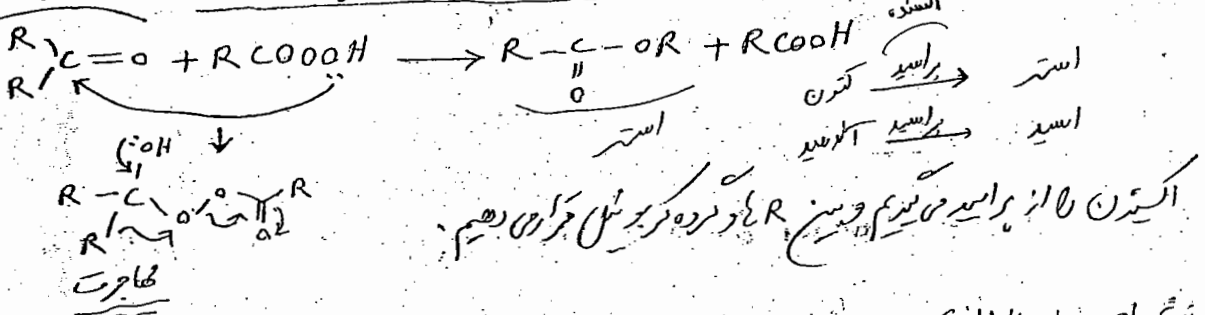 R
R C=O + RCOOOH → R-C-OR + RCOOH
O
کتون پراسید → استر
استر
آلدهید پراسید → اسید
:OH
R-C O O R
R O O
مهاجرت
اکسیژن را از پراسید می‌گیریم و بین R ها و گروه کربونیل قرار می‌دهیم.